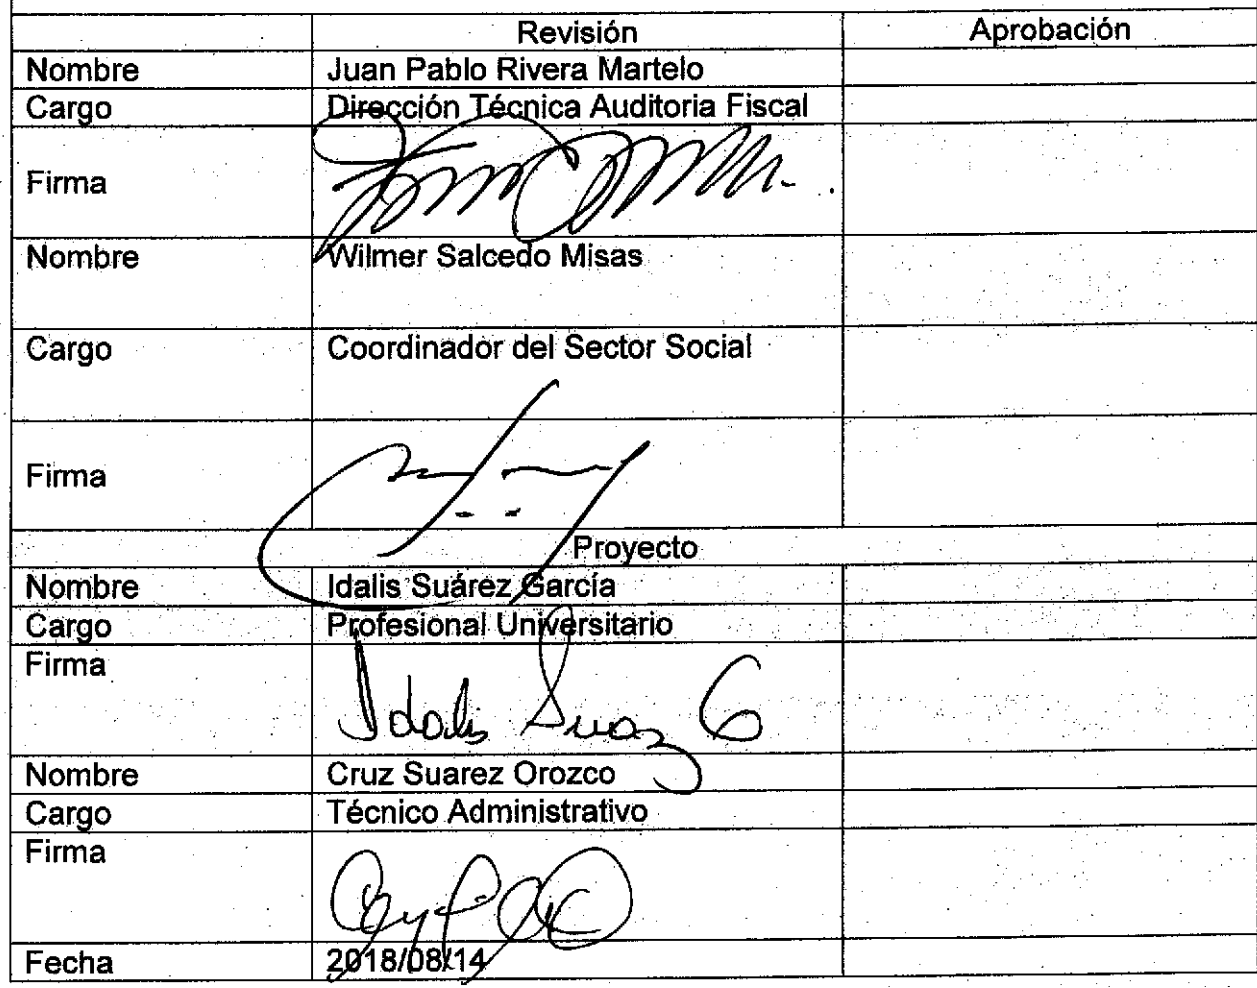 Revisión Aprobación
Nombre Juan Pablo Rivera Martelo
Cargo Dirección Técnica Auditoria Fiscal
Firma
Nombre Wilmer Salcedo Misas
Cargo Coordinador del Sector Social
Firma
Proyecto
Nombre Idalis Suárez García
Cargo Profesional Universitario
Firma
Idalis Suaz G
Nombre Cruz Suarez Orozco
Cargo Técnico Administrativo
Firma
Fecha 2018/08/14